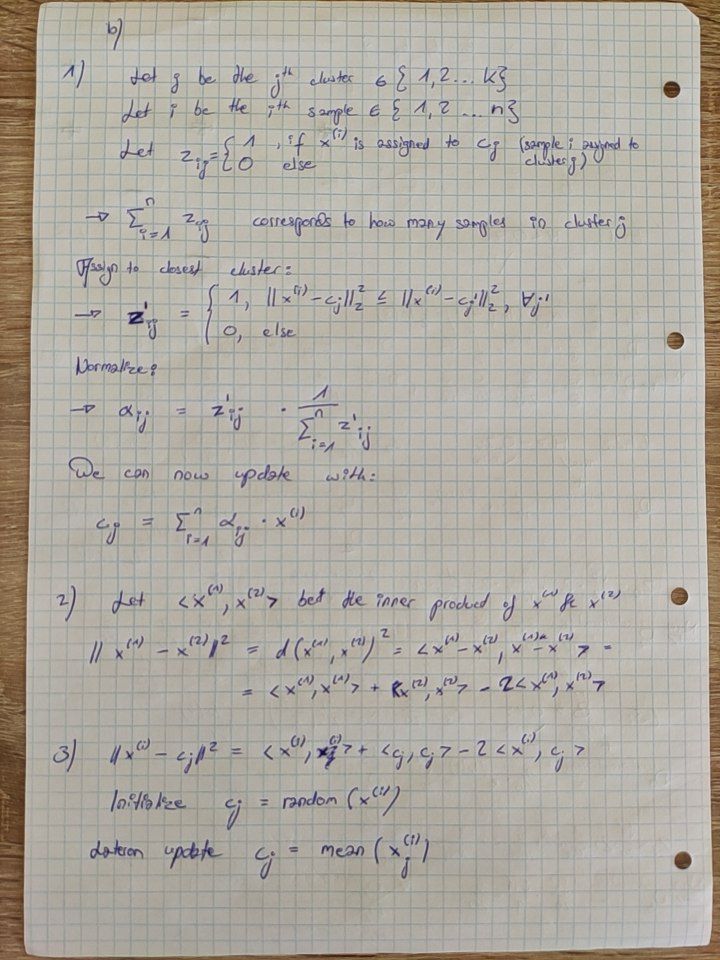 b)
1) Let j be the jth cluster ∈ {1,2...k}
Let i be the ith sample ∈ {1,2...n}
Let z_ij = { 1, if x^(i) is assigned to c_j (sample i assigned to cluster j)
0 else
→ Σ_{i=1}^n z_ij corresponds to how many samples in cluster j
Assign to closest cluster:
→ z'_ij = { 1, ||x^(i) - c_j||_2^2 ≤ ||x^(i) - c_j'||_2^2, ∀j'
0, else
Normalize:
→ α_ij = z'_ij · 1 / Σ_{i=1}^n z'_ij
We can now update with:
c_j = Σ_{i=1}^n α_ij · x^(i)
2) Let <x^(1), x^(2)> be the inner product of x^(1) x^(2)
||x^(1) - x^(2)||^2 = d(x^(1), x^(2))^2 = <x^(1) - x^(2), x^(1) - x^(2)> =
= <x^(1), x^(1)> + <x^(2), x^(2)> - 2<x^(1), x^(2)>
3) ||x^(i) - c_j||^2 = <x^(i), x^(i)> + <c_j, c_j> - 2<x^(i), c_j>
Initialize c_j = random(x^(i))
update c_j = mean(x_j^(i))